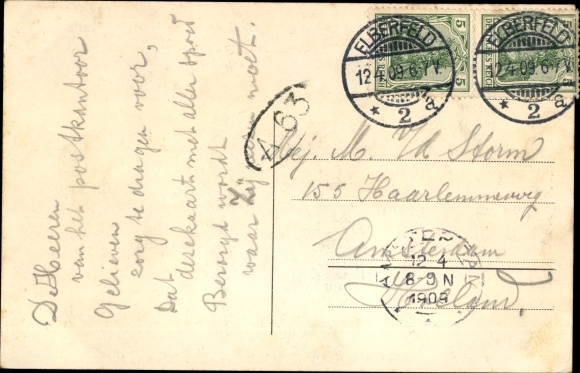 De Heeren
van het postkantoor
Gelieven
zorg te dragen voor,
Dat
deze kaart met aller spoed
Bezorgd wordt
waar Zij wezen moet.
5 5
5 5
ELBERFELD
12.4.09.6-7V.
* 2 a
ELBERFELD
12.4.09.6-7V.
* 2 a
63
Mej. M. v/d Storm
155 Haarlemmerweg
Amsterdam
Holland
12.4
8-9 N
1909